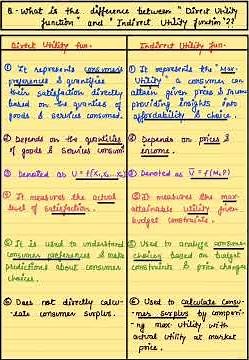 Q.- What is the difference between "Direct Utility
function" and "Indirect Utility function"??
Direct Utility fun.
① It represents consumer
preferences & quantifies
their satisfaction directly
based on the quantities of
goods & services consumed.
② Depends on the quantities
of goods & services consum
③ Denoted as U = f(X₁,X₂...Xₙ)
④ It measures the actual
level of satisfaction.
⑤ It is used to understand
consumer preferences & make
predictions about consumer
choices.
⑥ Does not directly calcu-
late consumer surplus.
Indirect Utility fun.
① It represents the "Max
Utility" a consumer can
attain given prices & income
providing insights into
affordability & choice.
② Depends on prices &
income.
③ Denoted as U = f(M,P)
④ It measures the max-
attainable utility given
budget constraints.
⑤ Used to analyze consumer
choices based on budget
constraints & price changes
⑥ Used to calculate consu-
mer surplus by compari-
ng max utility with
actual utility at market
price.